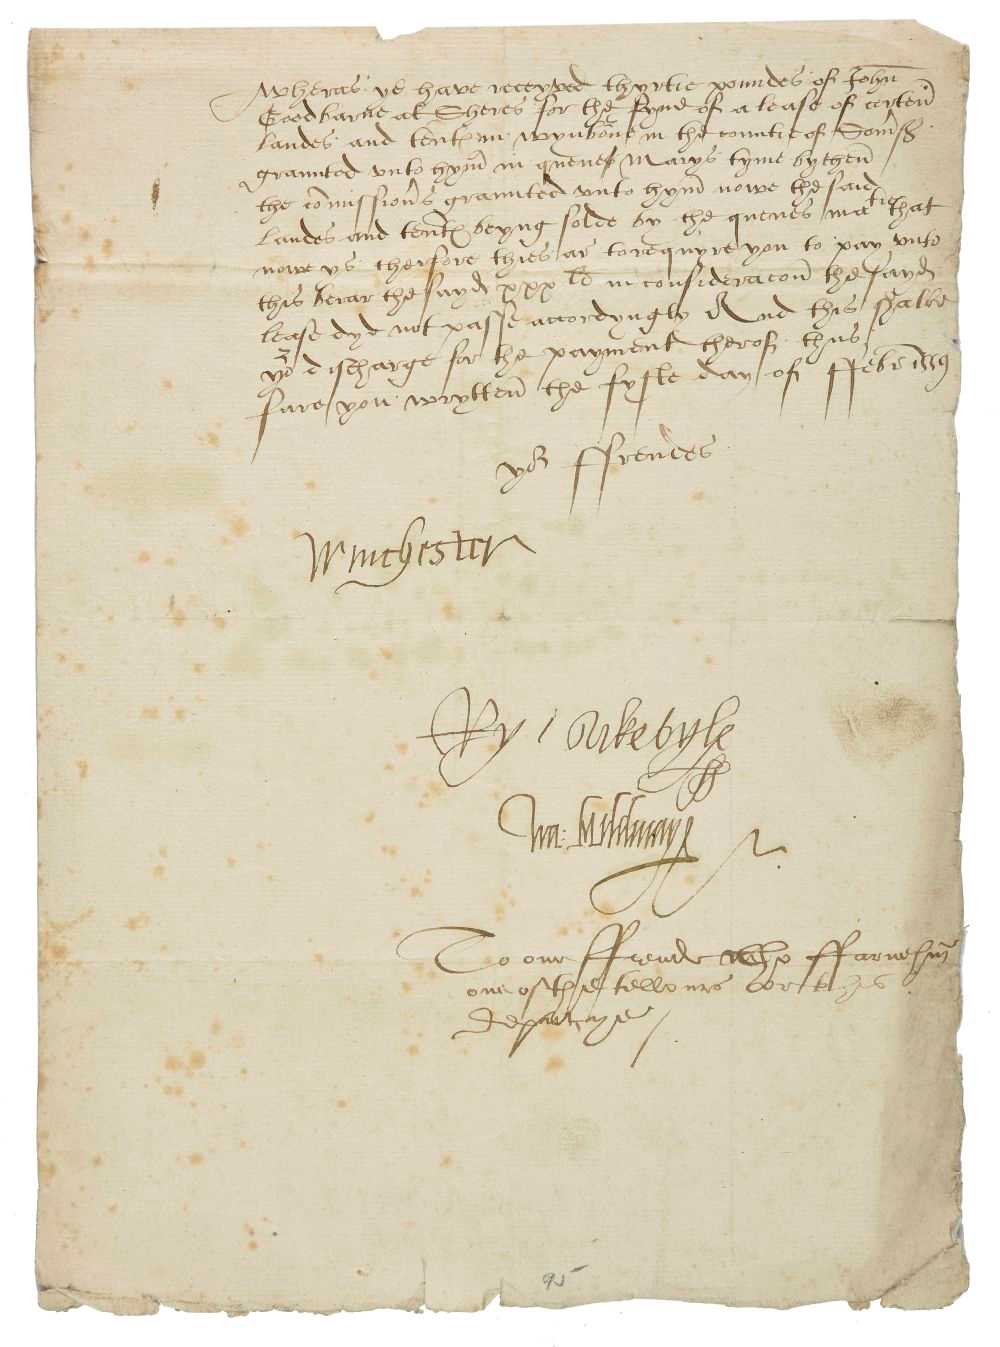 Wheras ye have receyved thyrtie poundes of John
Goodbarne at Sheres for the fyne of a lease of certen
landes and tent in wynborne in the countie of Somss
graunted unto hym in quenes Marys tyme by then
the comissions graunted unto hym nowe the said
landes and tent beyng solde by the quenes matie that
nowe ys therfore thies ar to requyre you to pay unto
this berar the sayd xxx li in consideracon the sayd
lease dyd not passe accordyngly And this shalbe
yor discharge for the payment therof thus
fare you wrytten the fyfte day of ffebr 1559
yor ffrendes
Winchester
Ry Sakevyle
Wa: Mildmay
To our ffrende ffarnehm
one of the tellours